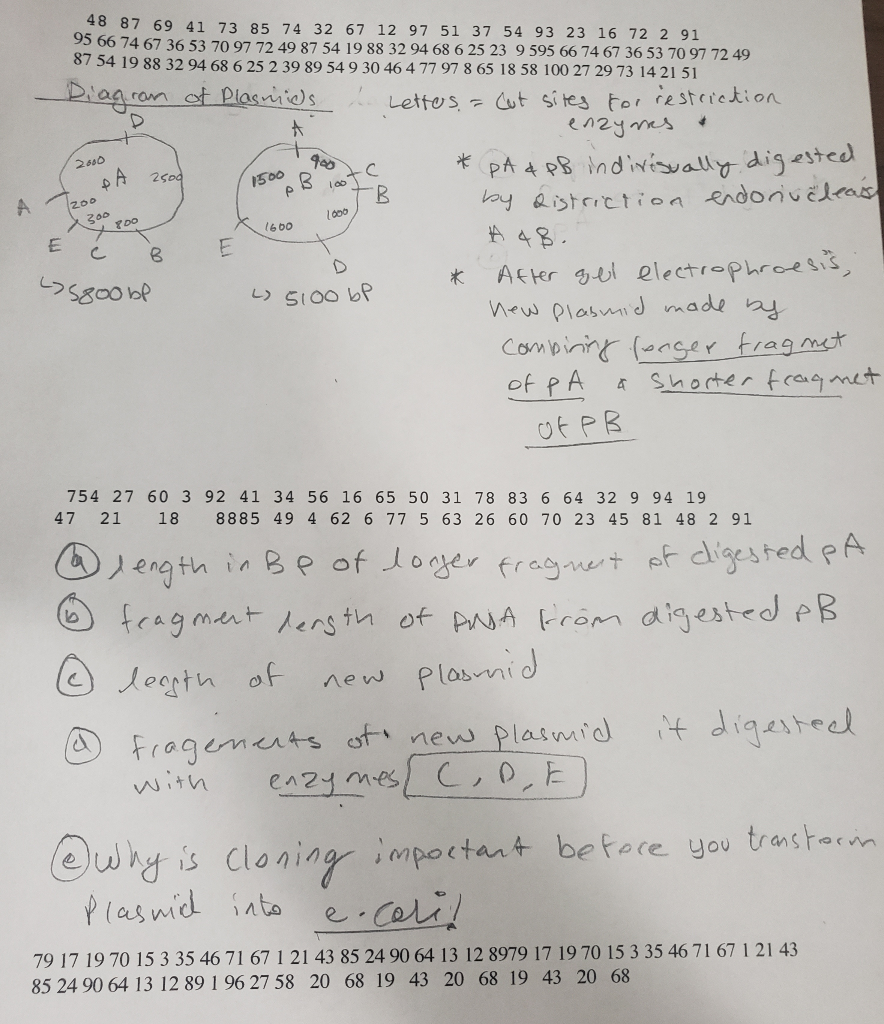 48 87 69 41 73 85 74 32 67 12 97 51 37 54 93 23 16 72 2 91
95 66 74 67 36 53 70 97 72 49 87 54 19 88 32 94 68 6 25 23 9 595 66 74 67 36 53 70 97 72 49
87 54 19 88 32 94 68 6 25 2 39 89 54 9 30 46 4 77 97 8 65 18 58 100 27 29 73 14 21 51
Diagram of Plasmids
Letters = Cut sites for restriction
enzymes
D
2000
pA
2500
A
200
300
800
E
C
B
↳ 5800 bp
A
900
C
1500
pB
100
B
1000
1600
E
D
↳ 5100 bp
* pA & pB indivisually digested
by ristriction endonucleas
A & B.
* After gel electrophroesis,
New plasmid made by
Combining longer fragmet
of pA & shorter fragmet
of PB
754 27 60 3 92 41 34 56 16 65 50 31 78 83 6 64 32 9 94 19
47 21 18 8885 49 4 62 6 77 5 63 26 60 70 23 45 81 48 2 91
(a) length in BP of longer fragment of digested pA
(b) fragment length of DNA from digested pB
(c) length of new plasmid
(d) fragements of new plasmid if digested
with enzymes C, D, E
(e) Why is cloning important before you transform
Plasmid into e. coli!
79 17 19 70 15 3 35 46 71 67 1 21 43 85 24 90 64 13 12 8979 17 19 70 15 3 35 46 71 67 1 21 43
85 24 90 64 13 12 89 1 96 27 58 20 68 19 43 20 68 19 43 20 68